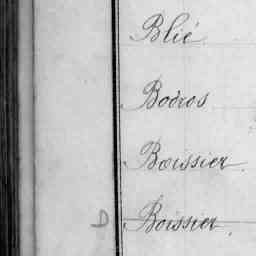 Blié
Bodros
Boissier.
D Boissier.